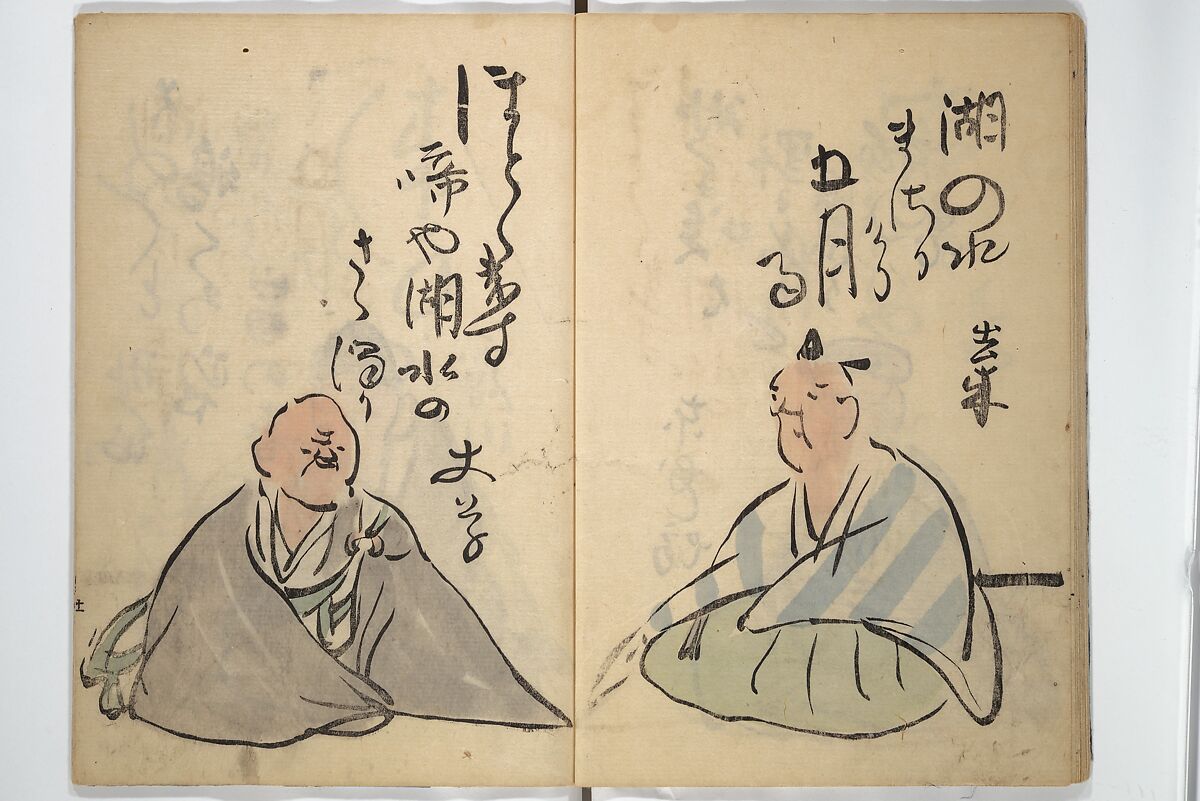 湖の水
まさり
けり
五月
雨
去来
ほとゝきす
啼や湖水の
さゝ濁り
丈草